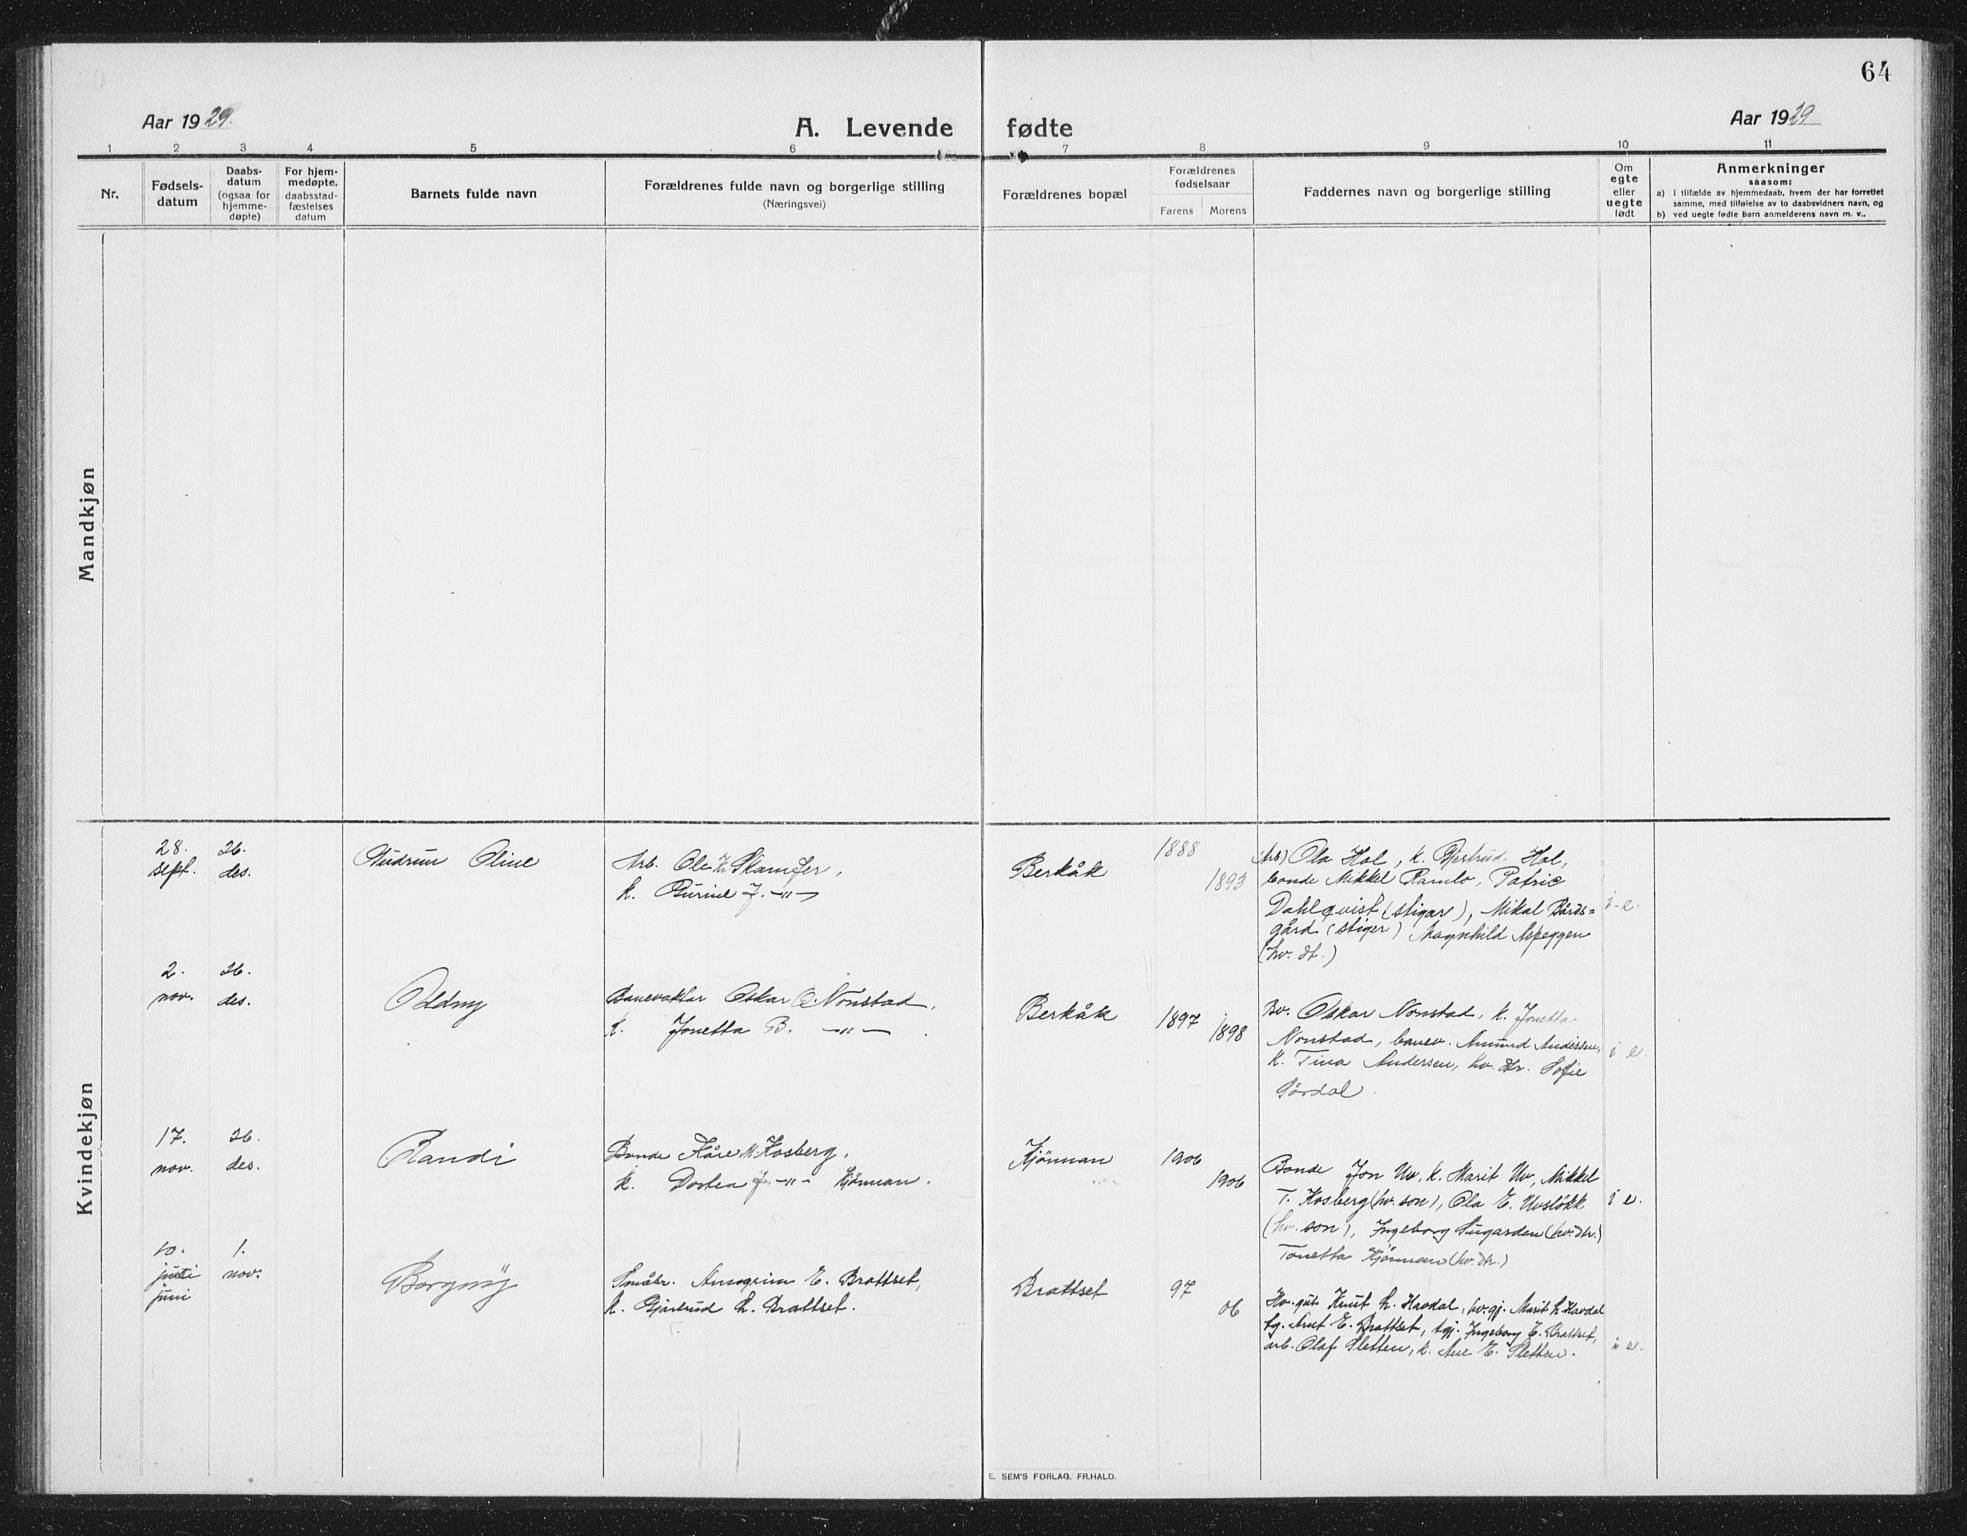 64
Aar 1929.
A. Levende fødte
Aar 1929
1 2 3 4 5 6 7 8 9 10 11
Nr.
Fødsels-
datum
Daabs-
datum
(ogsaa for
hjemme-
døpte)
For hjem-
medøpte,
daabsstad-
fæstelses
datum
Barnets fulde navn
Forældrenes fulde navn og borgerlige stilling
(Næringsvei)
Forældrenes bopæl
Forældrenes
fødselsaar
Farens Morens
Faddernes navn og borgerlige stilling
Om
egte
eller
uegte
født
Anmerkninger
saasom:
a) i tilfælde av hjemmedaab, hvem der har forrettet
samme, med tilføielse av to daabsvidners navn, og
b) ved uegte fødte barn anmelderens navn m. v..
Mandkjøn
Kvindekjøn
28. sept.
26. des.
Gudrun Oline
Arb. Ole Skamfer,
k. J. -"-
Berkåk
1888
1893
(Arb) Ola Hol, k. Gjertrud Hol,
bonde Mikkel Ramlo, Patric
Dahlqvist (stiger), Mikal Bårds=
gård (stiger) Magnhild Aspeggen
(hv. dt.)
i e.
2. nov.
26. des.
Oddny
Banevokter Oskar O. Nonstad,
k. Jonetta B. -"-
Berkåk
1897
1898
Bv. Oskar Nonstad, k. Jonetta
Nonstad, banev. Amund Andersen,
k. Tina Andersen, hv. dtr. Sofie
Sørdal.
i e.
17. nov.
26. des.
Randi
Bonde Kåre M. Hosberg,
k. Dortea J. -"- Kjønman.
Kjønman
1906
1906
Bonde Jon Uv, k. Marit Uv, Mikkel
T. Hosberg (hv. son), Ola E. Uvsløkk
(hv. son), Ingeborg (hv. dtr.)
Tonetta Kjønman (hv. dtr.)
i e.
10. juli
juni
1. nov.
Borgny
Småbr. Arnegrim E. Brattset,
k. Gjertrud L. Brattset.
Brattset
97
06
Hv. gut Knut L. Havdal, hv. gj. Marit L. Havdal
tg. E. Brattset, tgj. Ingeborg E. Brattset,
arb. Olaf Sletten, k. Ane E. Sletten.
i e.
E. SEM'S FORLAG, FR.HALD.